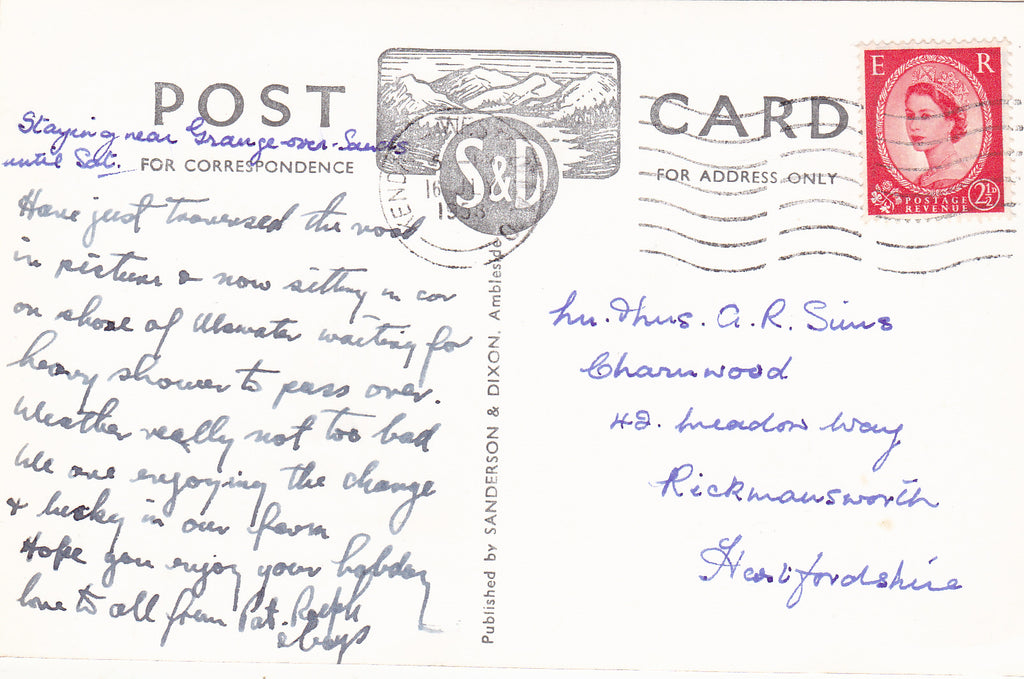 POST CARD
Staying near Grange-over-Sands
until Sat.
FOR CORRESPONDENCE
Have just traversed the road
in picture & now sitting in car
on shore of Ullswater waiting for
heavy shower to pass over.
Weather really not too bad
We are enjoying the change
& lucky in our farm
Hope you enjoy your holiday
love to all from Pat. Ralph
& boys
S&D
KENDAL
16
1958
Published by SANDERSON & DIXON, Ambleside
FOR ADDRESS ONLY
E R
POSTAGE
REVENUE
2½D
Mr. & Mrs. A. R. Sims
Charnwood
42. Meadow Way
Rickmansworth
Hertfordshire